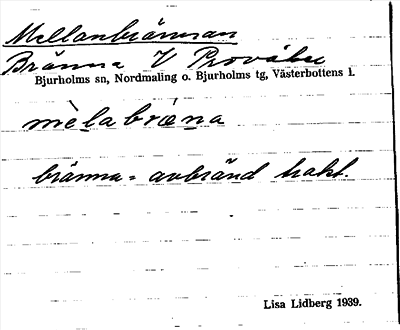 Mellanbrännan
Bränna V Provåker
Bjurholms sn, Nordmaling o. Bjurholms tg, Västerbottens l.
mèlabræna
bränna = avbränd trakt.
Lisa Lidberg 1939.